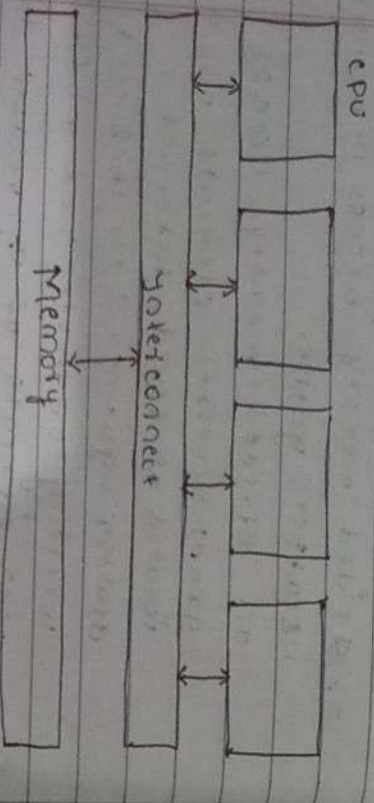 CPU
Interconnect
Memory